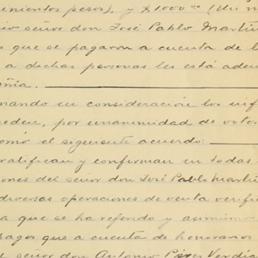 nientos pesos), y $1000.00 (Un m
señor don José Pablo Martín
s que se pagaron a cuenta de l
a dichas personas les está ade
ñía.
mando en consideración los inf
eden, por unanimidad de votos
omó el siguiente acuerdo:
ratifican y confirman en todas
ones del señor don José Pablo Martín
diversas operaciones de venta verifi
a que se ha referido y asimismo
pagos que a cuenta de honorarios
señor don Antonio Pérez Verdía